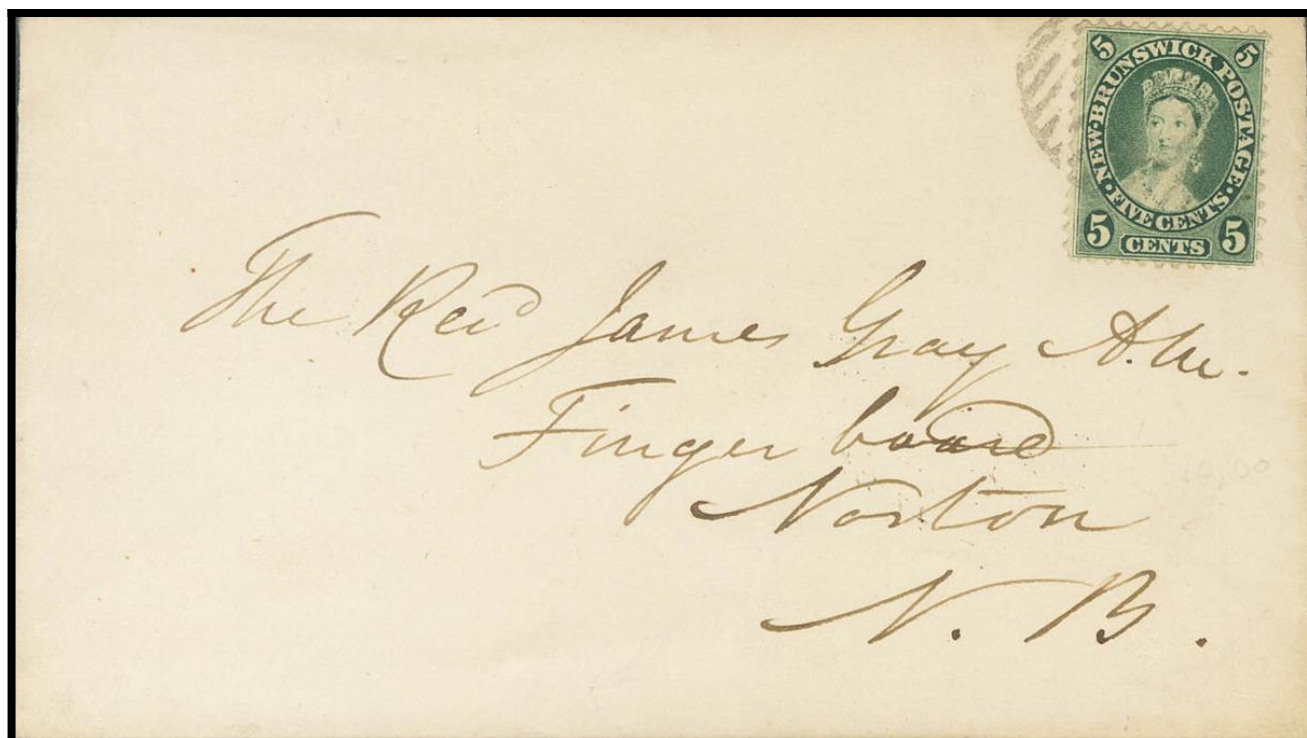 5 5
NEW·BRUNSWICK POSTAGE·
·FIVE CENTS·
5 CENTS 5
The Revd James Gray A.M.
Finger board
Norton
N. B.